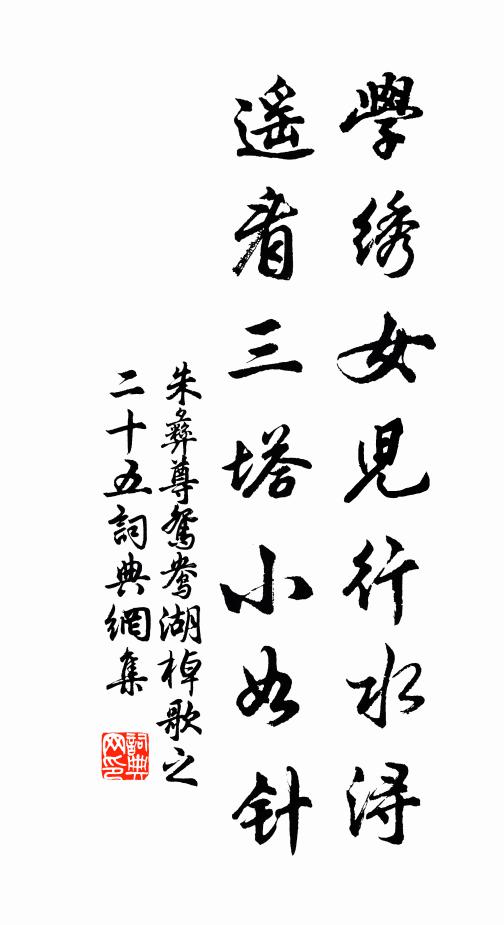 學绣女兒行水浔
遥看三塔小如针
朱彝尊鸳鸯湖棹歌之
二十五詞典網集
詞典
网印